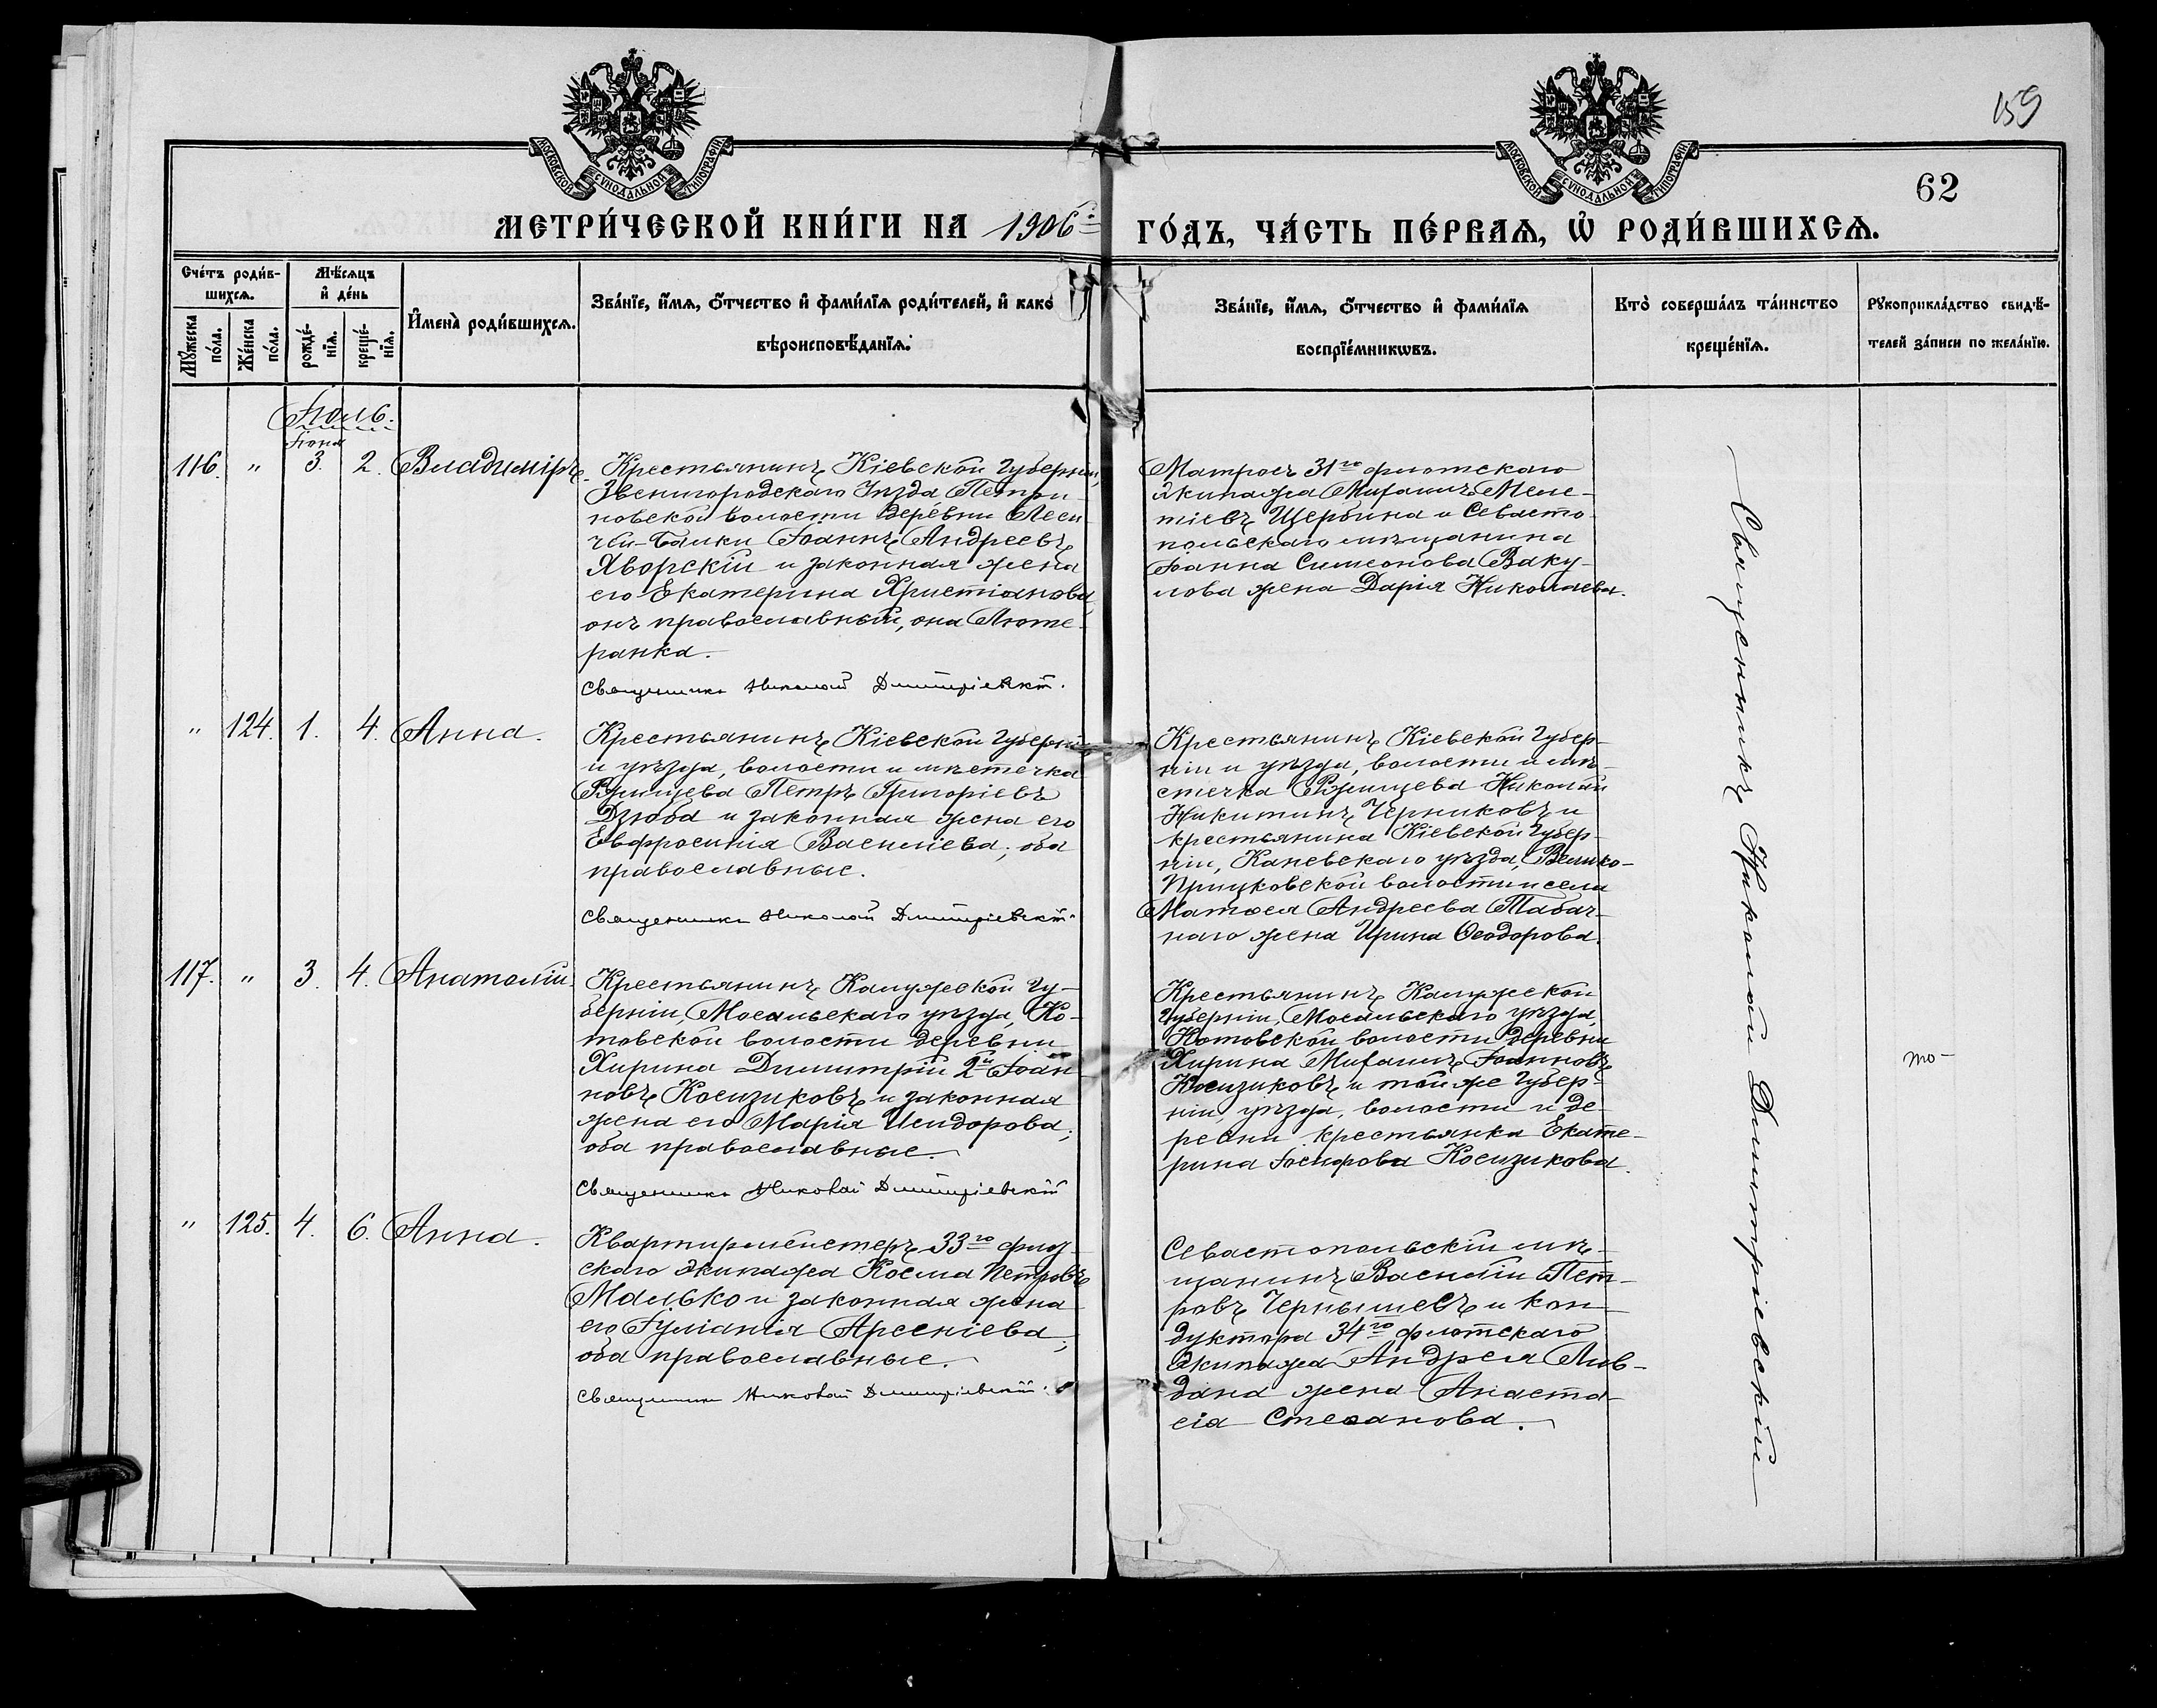 159
62
МОСКОВСКОЙ СѴНОДАЛЬНОЙ ТИПОГРАФІИ
МОСКОВСКОЙ СѴНОДАЛЬНОЙ ТИПОГРАФІИ
МЕТРИ́ЧЕСКОЙ КНИ́ГИ НА 1906й ГО́ДЪ, ЧА́СТЬ ПЕ́РВАѦ, Ѡ҆ РОДИ́ВШИХСѦ.
Сче́тъ роди́в-
шихсѧ.
Мꙋ́жеска по́ла.
Же́нска по́ла.
Мѣ́сѧцъ
и҆ де́нь
рожде́-
нїѧ.
креще́-
нїѧ.
И҆мена̀ роди́вшихсѧ.
Зва́нїе, и҆́мѧ, ѻ҆́тчество и҆ фами́лїѧ роди́телей, и҆ како́
вѣроисповѣ́данїѧ.
Зва́нїе, и҆́мѧ, ѻ҆́тчество и҆ фами́лїѧ
воспрїе́мникѡвъ.
Кто̀ соверша́лъ та́инство
креще́нїѧ.
Рꙋкоприкла́дство свидѣ́-
телей за́писи по жела́нїю.
Іюль.
Іюня
116. " 3. 2. Владиміръ.
Крестьянинъ Кіевской Губерніи,
Звенигородскаго Уѣзда Петри-
новской волости деревни Леси-
чьи-Балки Іоаннъ Андреевъ
Яворскій и законная жена
его Екатерина Христіанова
онъ православный, она Люте-
ранка.
Священникъ Николай Димитріевскій.
Матросъ 31го флотскаго
экипажа Михаилъ Меле-
тіевъ Щербина и Севасто-
польскаго мѣщанина
Іоанна Симеонова Ваку-
лова жена Дарія Николаева.
" 124. 1. 4. Анна.
Крестьянинъ Кіевской Губерніи
и уѣзда, волости и мѣстечка
Ржищева Петръ Григоріевъ
Дзюба и законная жена его
Евфросинія Василіева; оба
православные.
Священникъ Николай Димитріевскій.
Крестьянинъ Кіевской Губер-
ніи и уѣзда, волости и мѣ-
стечка Ржищева Николай
Никитинъ Черниковъ и
крестьянина Кіевской Губер-
ніи, Каневскаго уѣзда, Велико-
Прицковской волости и села
Матѳея Андреева Табач-
наго жена Ирина Ѳеодорова.
117. " 3. 4. Анатолій.
Крестьянинъ Калужской Гу-
берніи, Мосальскаго уѣзда, Ко-
товской волости деревни
Хирина Димитрій 2й Іоан-
новъ Косизиковъ и законная
жена его Марія Исидорова;
оба православные.
Священникъ Николай Димитріевскій
Крестьянинъ Калужской
Губерніи, Мосальскаго уѣзда,
Котовской волости деревни
Хирина Михаилъ Іоанновъ
Косизиковъ и той же Губер-
ніи, уѣзда, волости и де-
ревни крестьянка Екате-
рина Іосифова Косизикова.
то-
" 125. 4. 6. Анна.
Квартирмейстеръ 33го флот-
скаго экипажа Косма Петровъ
Малько и законная жена
его Іуліанія Арсеніева;
оба православные.
Священникъ Николай Димитріевскій.
Севастопольскій мѣ-
щанинъ Василій Пет-
ровъ Чернышевъ и кон-
дуктора 34го флотскаго
экипажа Андрея Лив-
дана жена Анаста-
сія Стефанова.
Священникъ Николай Димитріевскій